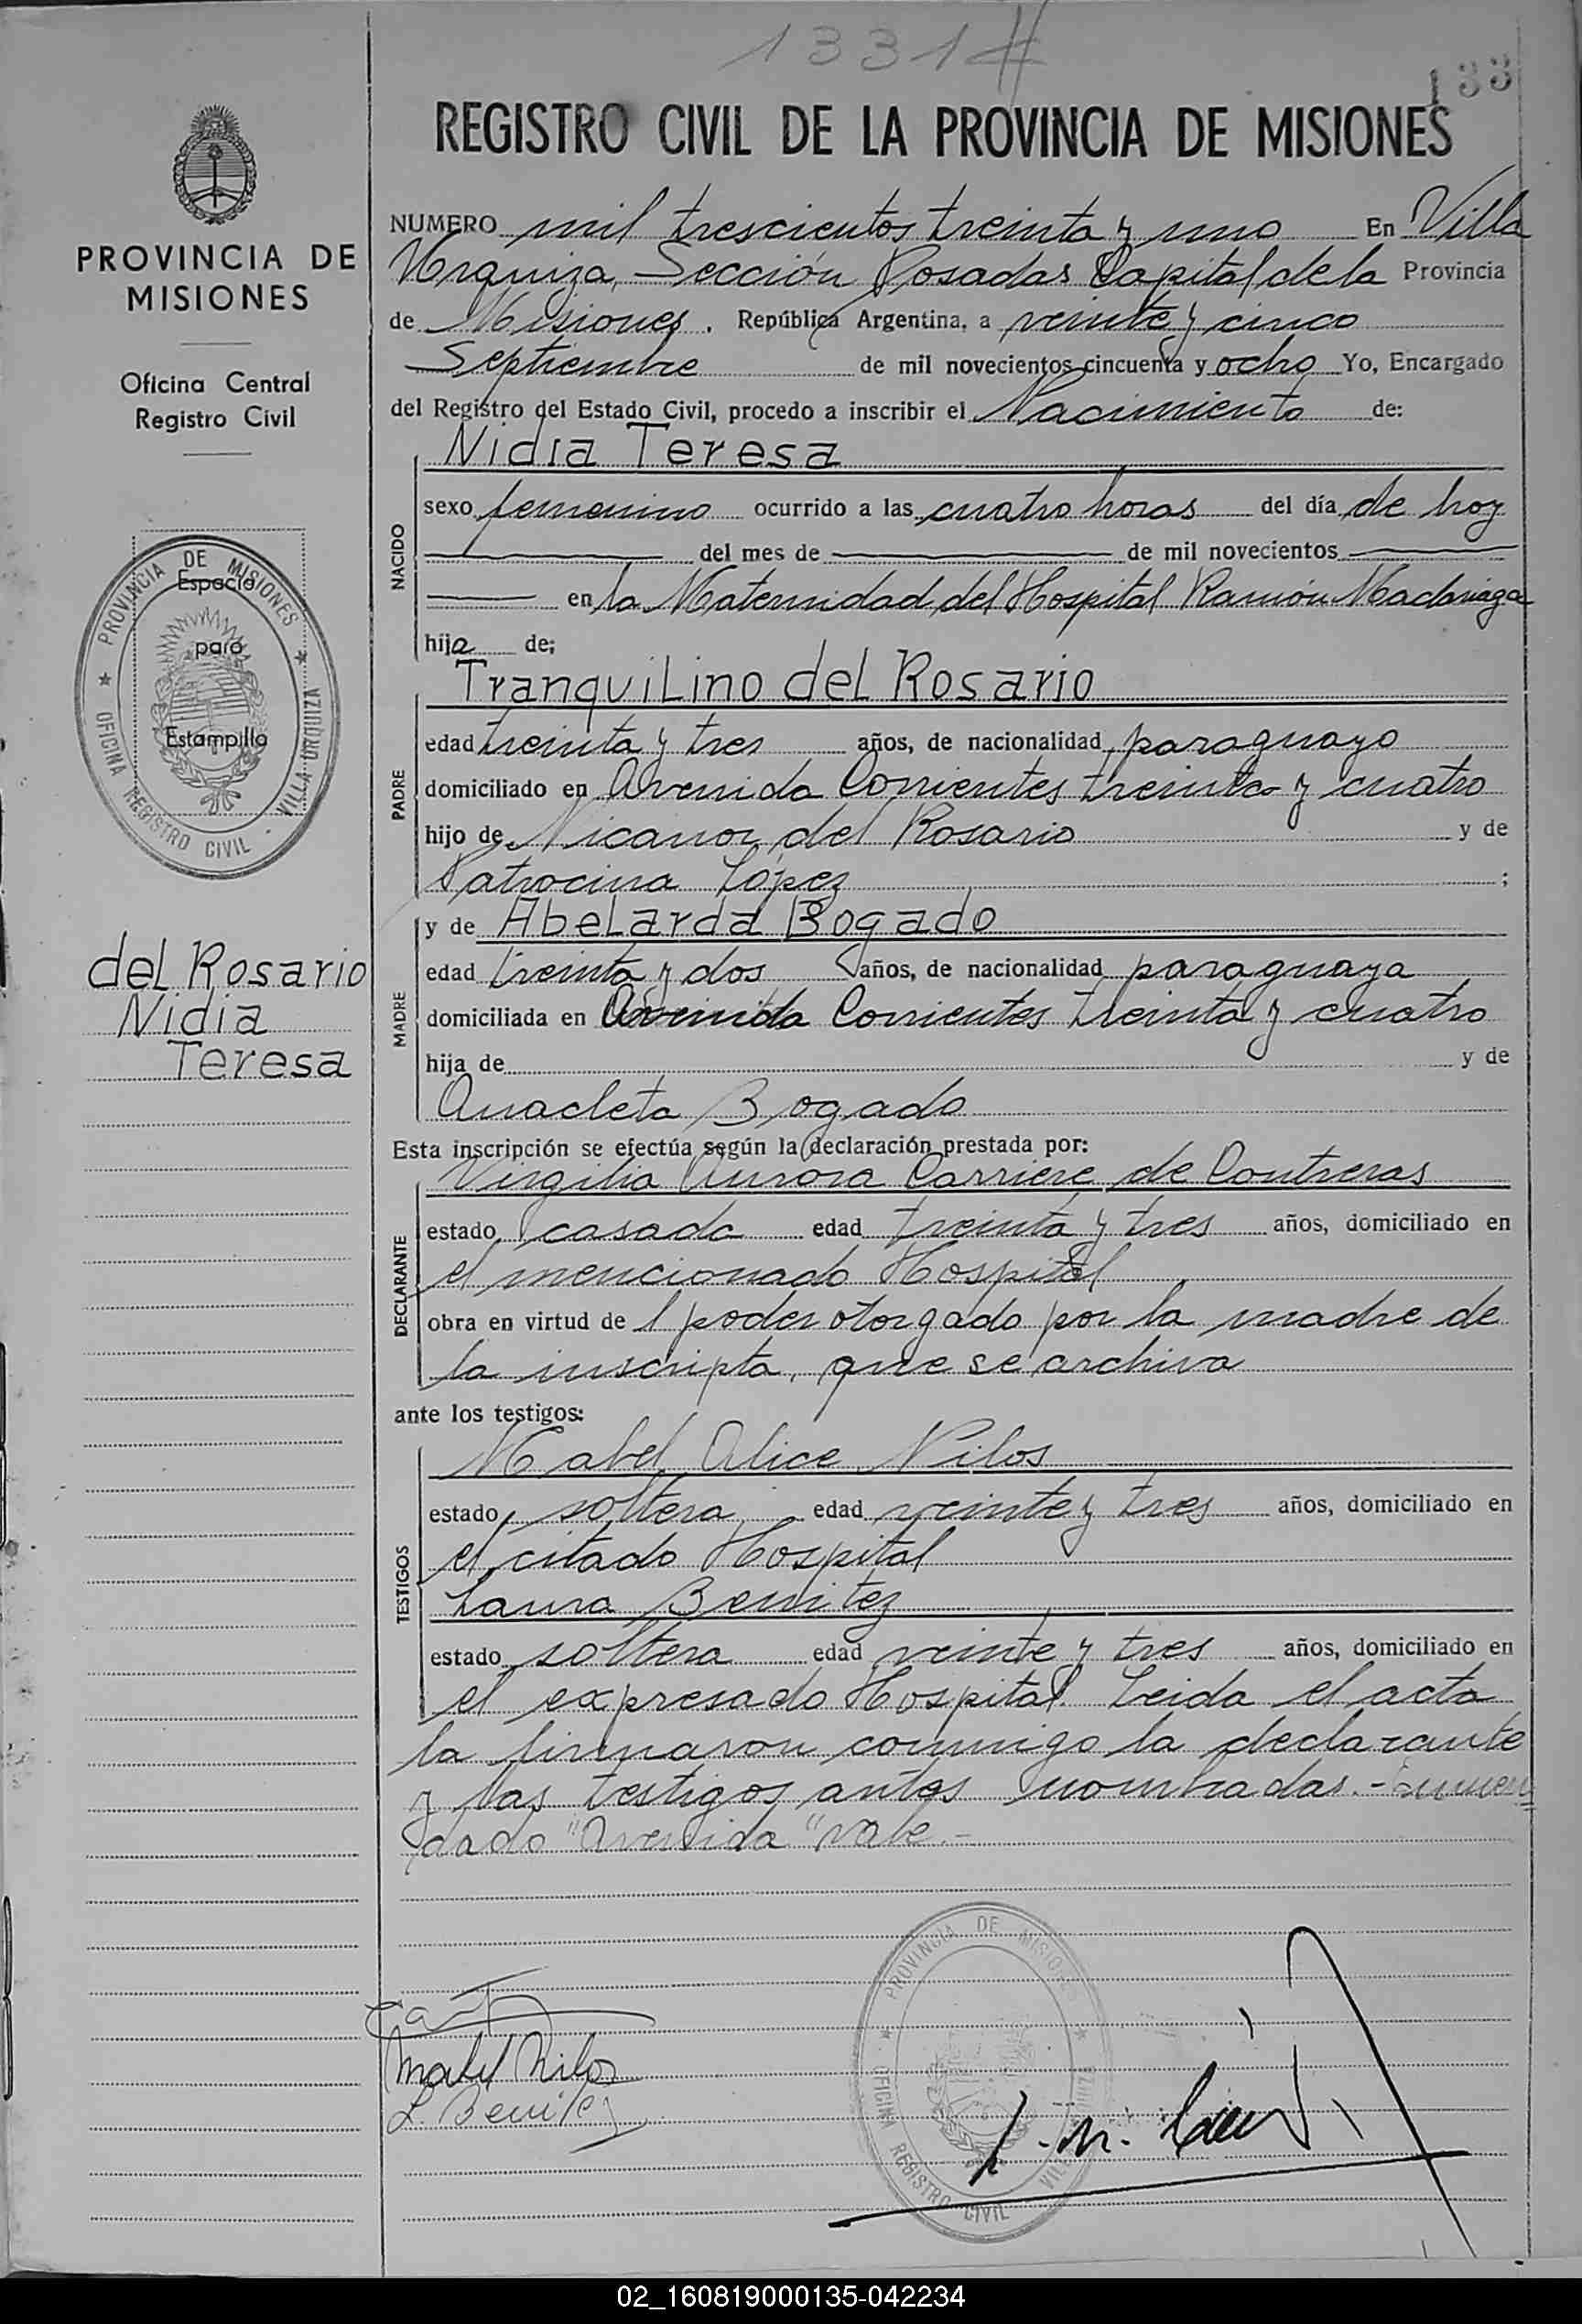 1331#
133
REGISTRO CIVIL DE LA PROVINCIA DE MISIONES
PROVINCIA DE
MISIONES
Oficina Central
Registro Civil
PROVINCIA DE MISIONES
OFICINA REGISTRO CIVIL - VILLA URQUIZA
Espacio
para
Estampilla
del Rosario
Nidia
Teresa
NUMERO mil trescientos treinta y uno En Villa
Urquiza, Sección Posadas Capital de la Provincia
de Misiones. República Argentina, a veinte y cinco
Septiembre de mil novecientos cincuenta y ocho Yo, Encargado
del Registro del Estado Civil, procedo a inscribir el Nacimiento de:
NACIDO
Nidia Teresa
sexo femenino ocurrido a las cuatro horas del día de hoy
del mes de de mil novecientos
en la Maternidad del Hospital Ramón Madariaga
hija de;
PADRE
Tranquilino del Rosario
edad treinta y tres años, de nacionalidad paraguayo
domiciliado en Avenida Corrientes treinta y cuatro
hijo de Nicanor del Rosario y de
Patrocina López ;
MADRE
y de Abelarda Bogado
edad treinta y dos años, de nacionalidad paraguaya
domiciliada en Avenida Corrientes treinta y cuatro
hija de y de
Anacleta Bogado
Esta inscripción se efectúa según la declaración prestada por:
DECLARANTE
Virgilia Aurora Carriere de Contreras
estado casada edad treinta y tres años, domiciliado en
el mencionado Hospital
obra en virtud de l poder otorgado por la madre de
la inscripta, que se archiva
ante los testigos:
TESTIGOS
Mabel Alice Nilos
estado soltera edad veinte y tres años, domiciliado en
el citado Hospital
Laura Benitez
estado soltera edad veinte y tres años, domiciliado en
el expresado Hospital. Leida el acta
la firmaron conmigo la declarante
y las testigos antes nombradas.- Enmen
dado "Avenida" vale.-
Mabel Nilos
L. Benitez
PROVINCIA DE MISIONES
OFICINA REGISTRO CIVIL
02_160819000135-042234